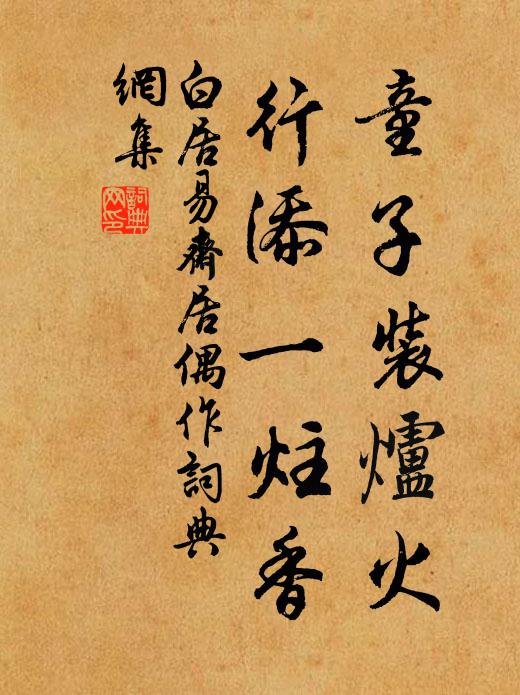 童子裝爐火
行添一炷香
白居易齋居偶作詞典
網集
詞典
网印